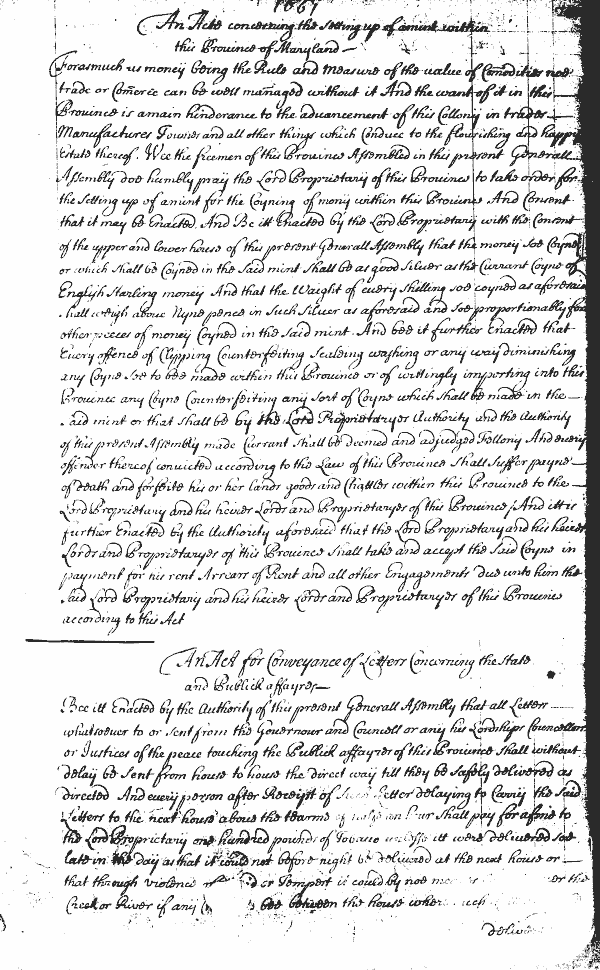 1661
An Acte concerning the setting up of a mint within
this Province of Maryland
Forasmuch as money being the Rule and measure of the value of Comodities noe
trade or Comerce can be well managed without it And the want of it in this
Province is a main hinderance to the advancement of this Collony in trades
Manufactures Townes and all other things which Conduce to the flourishing and happy
Estate thereof. Wee the freemen of this Province Assembled in this present Generall
Assembly doe humbly pray the Lord Proprietary of this Province to take order for
the setting up of a mint for the Coyning of mony within this Province And Consent
that it may be Enacted And Be itt Enacted by the Lord Proprietary with the Consent
of the upper and lower house of this present Generall Assembly that the money soe Coyned
or which shall be Coyned in the said mint shall be as good silver as the Currant Coyne of
English Starling money And that the Weight of every shilling soe coyned as aforesaid
shall weigh above Nyne pence in such silver as aforesaid and soe proportionably for
other peeces of money Coyned in the said mint. And bee it further Enacted that
Every offence of Clipping Counterfeiting Scaleing washing or any way diminishing
any Coyne soe to bee made within this Province or of wittingly importing into this
Province any Coyne Counterfeiting any sort of Coyne which shall be made in the
said mint or that shall be by the Lord Proprietaryes Authority and the Authority
of this present Assembly made Currant shall be deemed and adjudged Fellony And every
offender thereof convicted according to the Law of this Province shall suffer payne
of death and forfeite his or her lands goods and Chattles within this Province to the
Lord Proprietary and his heires Lords and Proprietaryes of this Province / And itt is
further Enacted by the Authority aforesaid that the Lord Proprietary and his heires
Lords and Proprietaryes of this Province shall take and accept the said Coyne in
payment for his rent Arrears of Rent and all other Engagements due unto him the
said Lord Proprietary and his heires Lords and Proprietaryes of this Province
according to this Act
An Act for Conveyance of Letters Concerning the State
and Publick affayres
Bee itt Enacted by the Authority of this present Generall Assembly that all Letters
whatsoever to or sent from the Governour and Councell or any his Lordships Councellors
or Justices of the peace touching the Publick affayres of this Province shall without
delay be sent from house to house the direct way till they be safely delivered as
directed And every person after Receipt of such Letter delaying to Carry the said
Letters to the next house above the tearme of half an hour shall pay for a fine to
the Lord Proprietary one hundred pounds of Tobaco unlesse itt were delivered soe
late in the day as that it could not before night be delivered at the next house or
that through violence of or Tempest it could by noe the
Creek or River if any be between the house where such
deliver